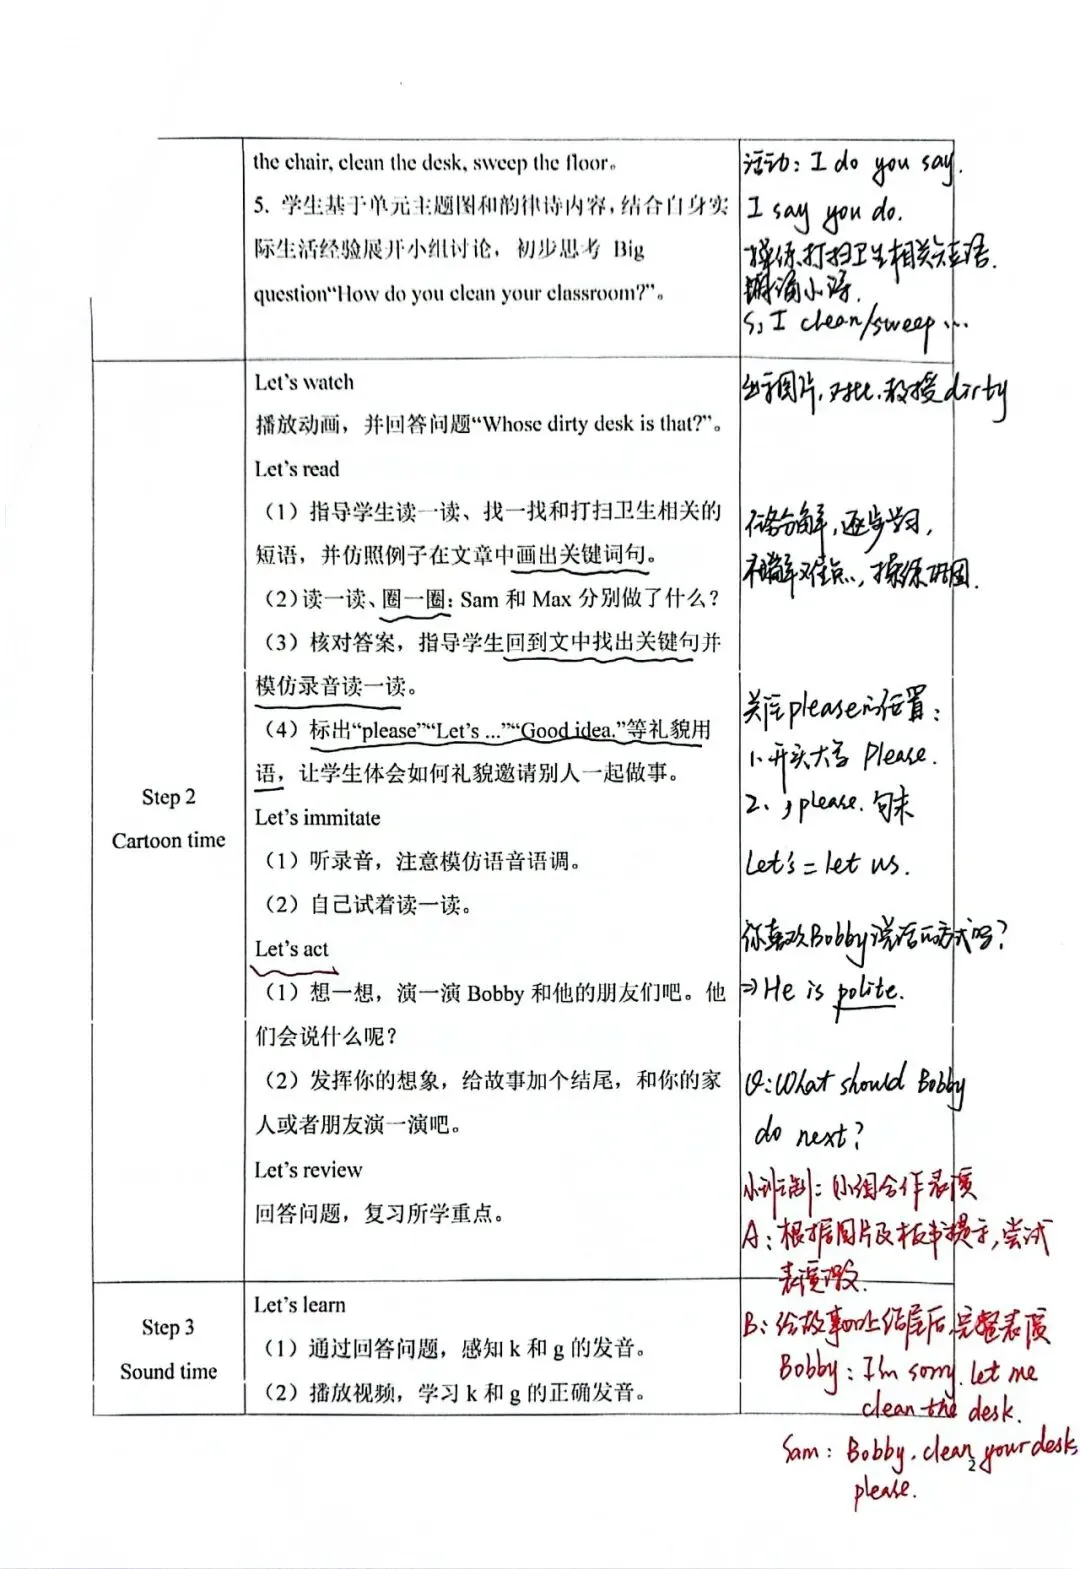 the chair, clean the desk, sweep the floor。
5. 学生基于单元主题图和韵律诗内容，结合自身实
际生活经验展开小组讨论，初步思考 Big
question“How do you clean your classroom?”。
活动：I do you say.
I say you do.
操练打扫卫生相关短语.
朗诵小诗.
S: I clean/sweep …
Step 2
Cartoon time
Let’s watch
播放动画，并回答问题“Whose dirty desk is that?”。
Let’s read
（1）指导学生读一读、找一找和打扫卫生相关的
短语，并仿照例子在文章中画出关键词句。
（2）读一读、圈一圈：Sam 和 Max 分别做了什么？
（3）核对答案，指导学生回到文中找出关键句并
模仿录音读一读。
（4）标出“please”“Let’s ...”“Good idea.”等礼貌用
语，让学生体会如何礼貌邀请别人一起做事。
Let’s immitate
（1）听录音，注意模仿语音语调。
（2）自己试着读一读。
Let’s act
（1）想一想，演一演 Bobby 和他的朋友们吧。他
们会说什么呢？
（2）发挥你的想象，给故事加个结尾，和你的家
人或者朋友演一演吧。
Let’s review
回答问题，复习所学重点。
出示图片，对比，教授dirty
任务分解，逐步学习，
理解难点，操练巩固.
关注please的位置：
1.开头大写 Please.
2. , please. 句末
Let's = let us.
你喜欢Bobby说话的方式吗？
⇒ He is polite.
Q: What should Bobby
do next?
小组合作表演
A：根据图片及板书提示，尝试
表演课文.
Step 3
Sound time
Let’s learn
（1）通过回答问题，感知 k 和 g 的发音。
（2）播放视频，学习 k 和 g 的正确发音。
B：给故事加上结尾后，完整表演
Bobby: I'm sorry. Let me
clean the desk.
Sam: Bobby, clean your desk,
please.
2